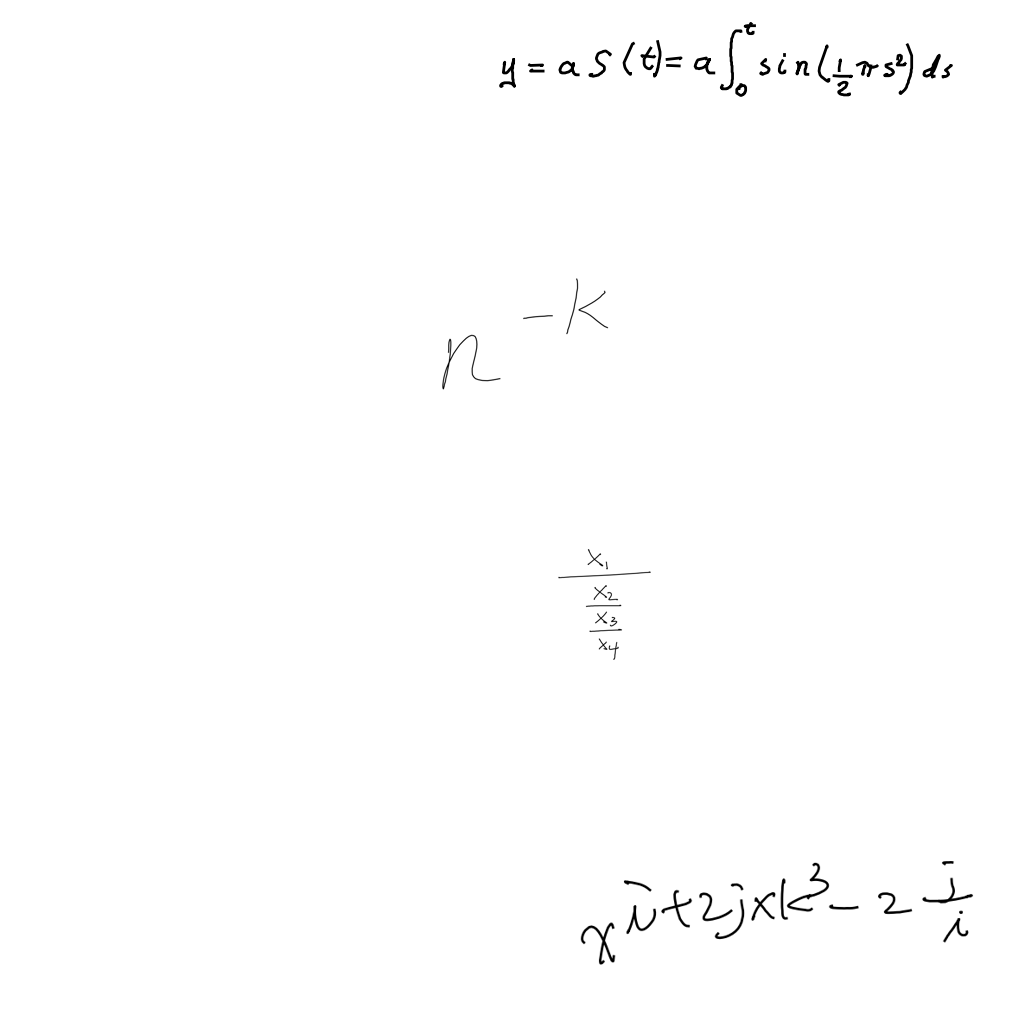 $y = a S(t) = a \int_0^t \sin(\frac{1}{2} \pi s^2) ds$
$n^{-k}$
$\frac{x_1}{\frac{x_2}{\frac{x_3}{x_4}}}$
$x^{\bar{i} + 2jxk^3 - 2\frac{j}{i}}$